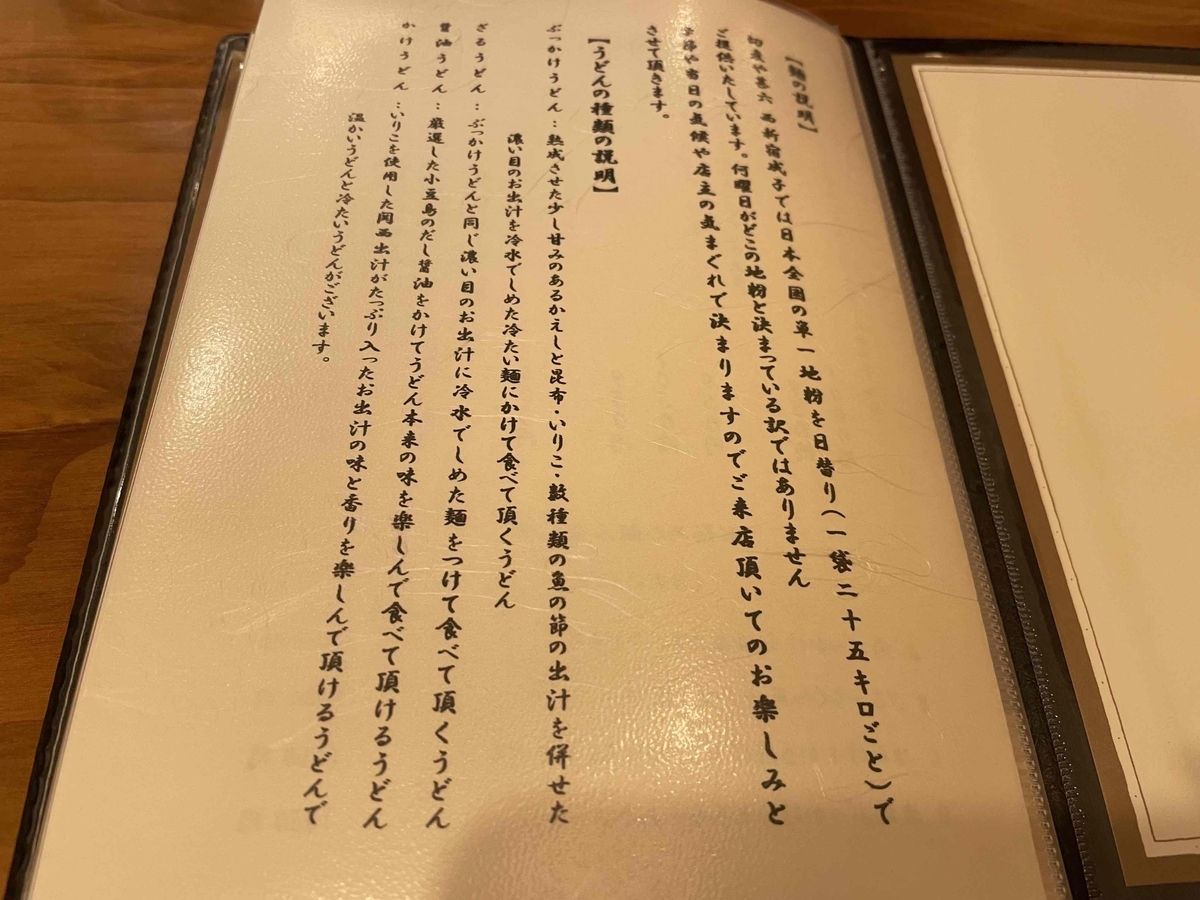 【麺の説明】
切麦や甚六 西新宿成子では日本全国の単一地粉を日替り(一袋二十五キロごと)で
ご提供いたしています。何曜日がどこの地粉と決まっている訳ではありません
季節や当日の気候や店主の気まぐれで決まりますのでご来店頂いてのお楽しみと
させて頂きます。
【うどんの種類の説明】
ぶっかけうどん:熟成させた少し甘みのあるかえしと昆布・いりこ・数種類の魚の節の出汁を併せた
濃い目のお出汁を冷水でしめた冷たい麺にかけて食べて頂くうどん
ざるうどん:ぶっかけうどんと同じ濃い目のお出汁に冷水でしめた麺をつけて食べて頂くうどん
醤油うどん:厳選した小豆島のだし醤油をかけてうどん本来の味を楽しんで食べて頂けるうどん
かけうどん:いりこを使用した関西出汁がたっぷり入ったお出汁の味と香りを楽しんで頂けるうどんで
温かいうどんと冷たいうどんがございます。